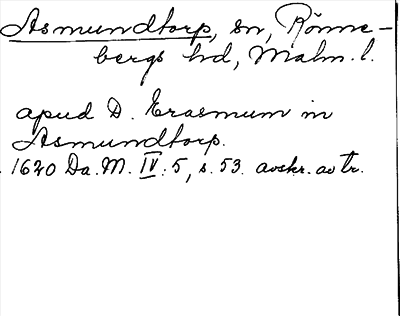 Asmundtorp, sn, Rönne-
bergs hd, Malm. l.
apud D. Erasmum in
Asmundtorp.
1620 Da. M. IV: 5, s. 53. avskr. av tr.